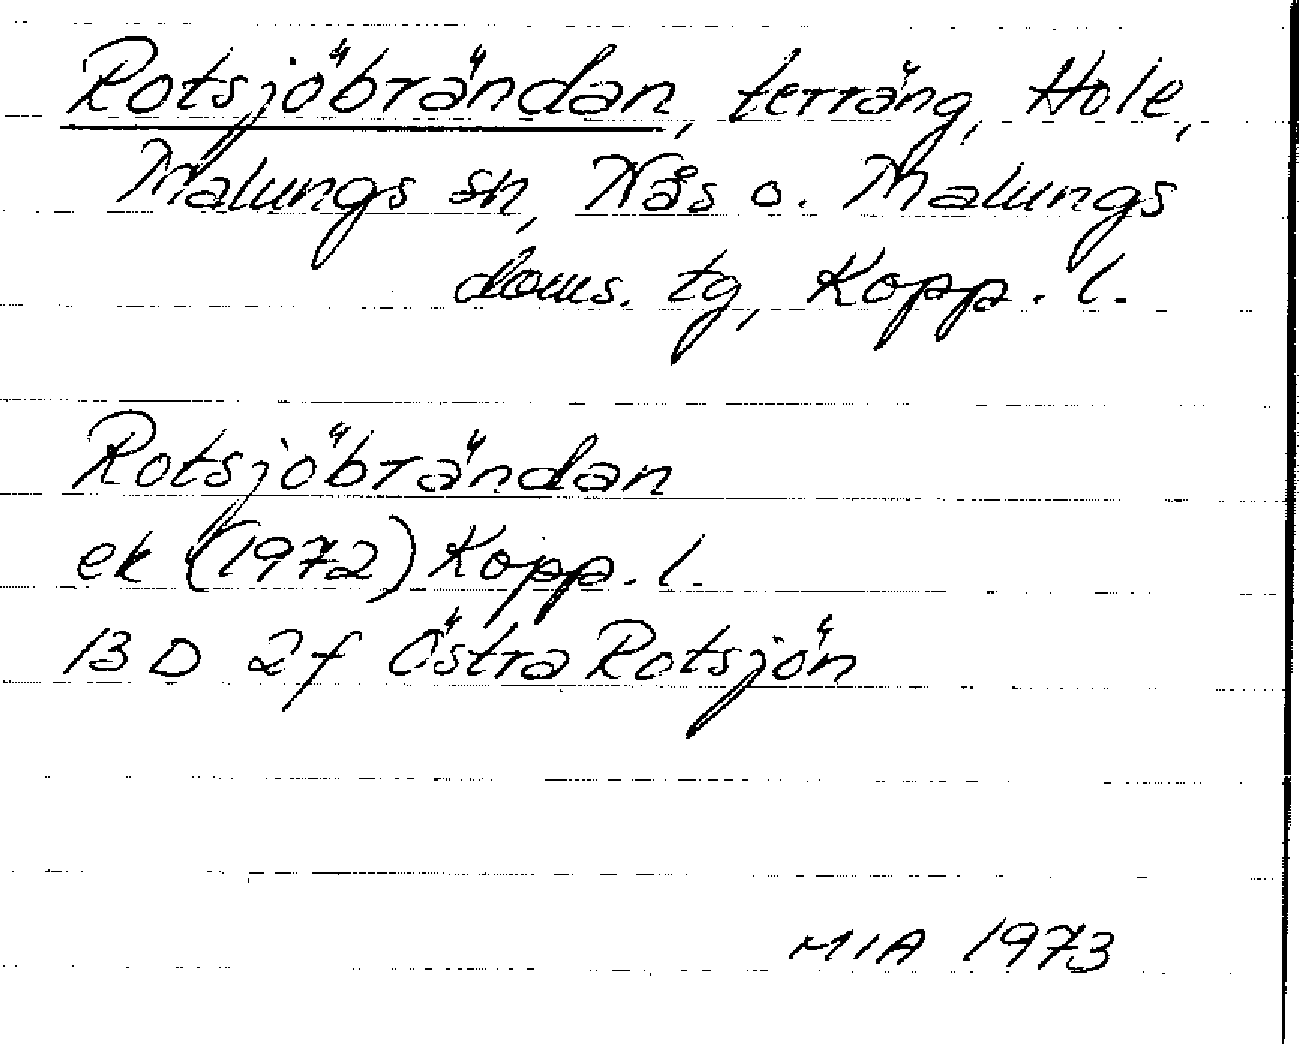 Rotsjöbrändan, terräng, Hole,
Malungs sn, Nås o. Malungs
doms. tg, Kopp. l.
Rotsjöbrändan
ek (1972) Kopp. l.
13 D 2f Östra Rotsjön
MIA 1973